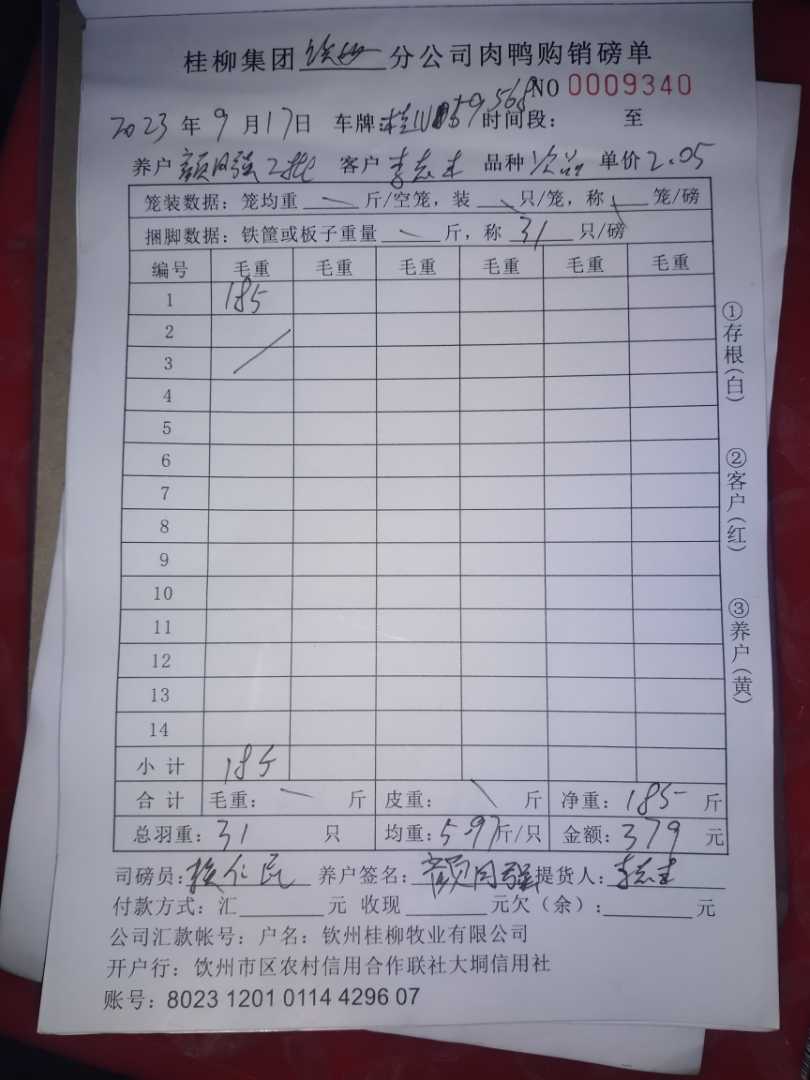 桂柳集团钦州分公司肉鸭购销磅单
NO 0009340
2023年9月17日 车牌: 时间段: 至
养户 客户 李志 品种 次品 单价 2.05
笼装数据: 笼均重 斤/空笼, 装 只/笼, 称 笼/磅
捆脚数据: 铁筐或板子重量 斤, 称 31 只/磅
编号 毛重 毛重 毛重 毛重 毛重 毛重
1 185
2
3
4
5
6
7
8
9
10
11
12
13
14
小计 185
合计 毛重: 斤 皮重: 斤 净重: 185 斤
总羽重: 31 只 均重: 5.97 斤/只 金额: 379 元
司磅员: 养户签名: 提货人: 李志
付款方式: 汇 元 收现 元欠(余): 元
公司汇款帐号: 户名: 钦州桂柳牧业有限公司
开户行: 饮州市区农村信用合作联社大垌信用社
账号: 8023 1201 0114 4296 07
①存根(白)
②客户(红)
③养户(黄)